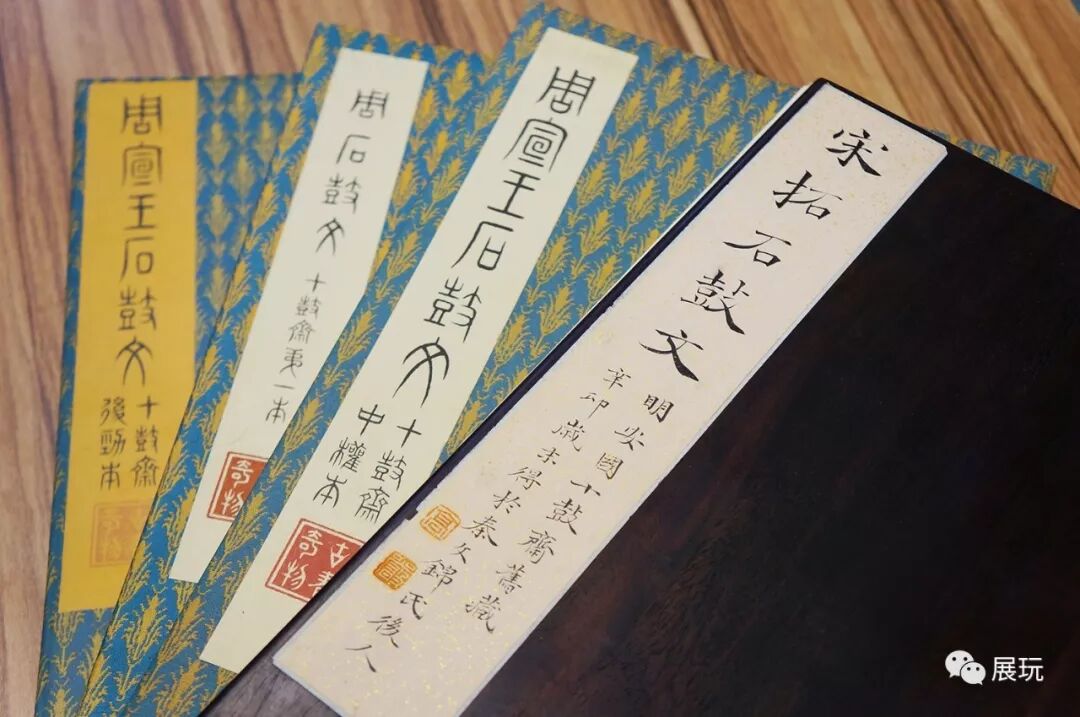 周宣王石鼓文
十鼓齋
後勁本
周石鼓文
十鼓齋弟一本
奇物
周宣王石鼓文
十鼓齋
中權本
奇物
宋拓石鼓文
明安國十鼓齋舊藏
辛卯歲末得於秦文錦氏後人
展玩